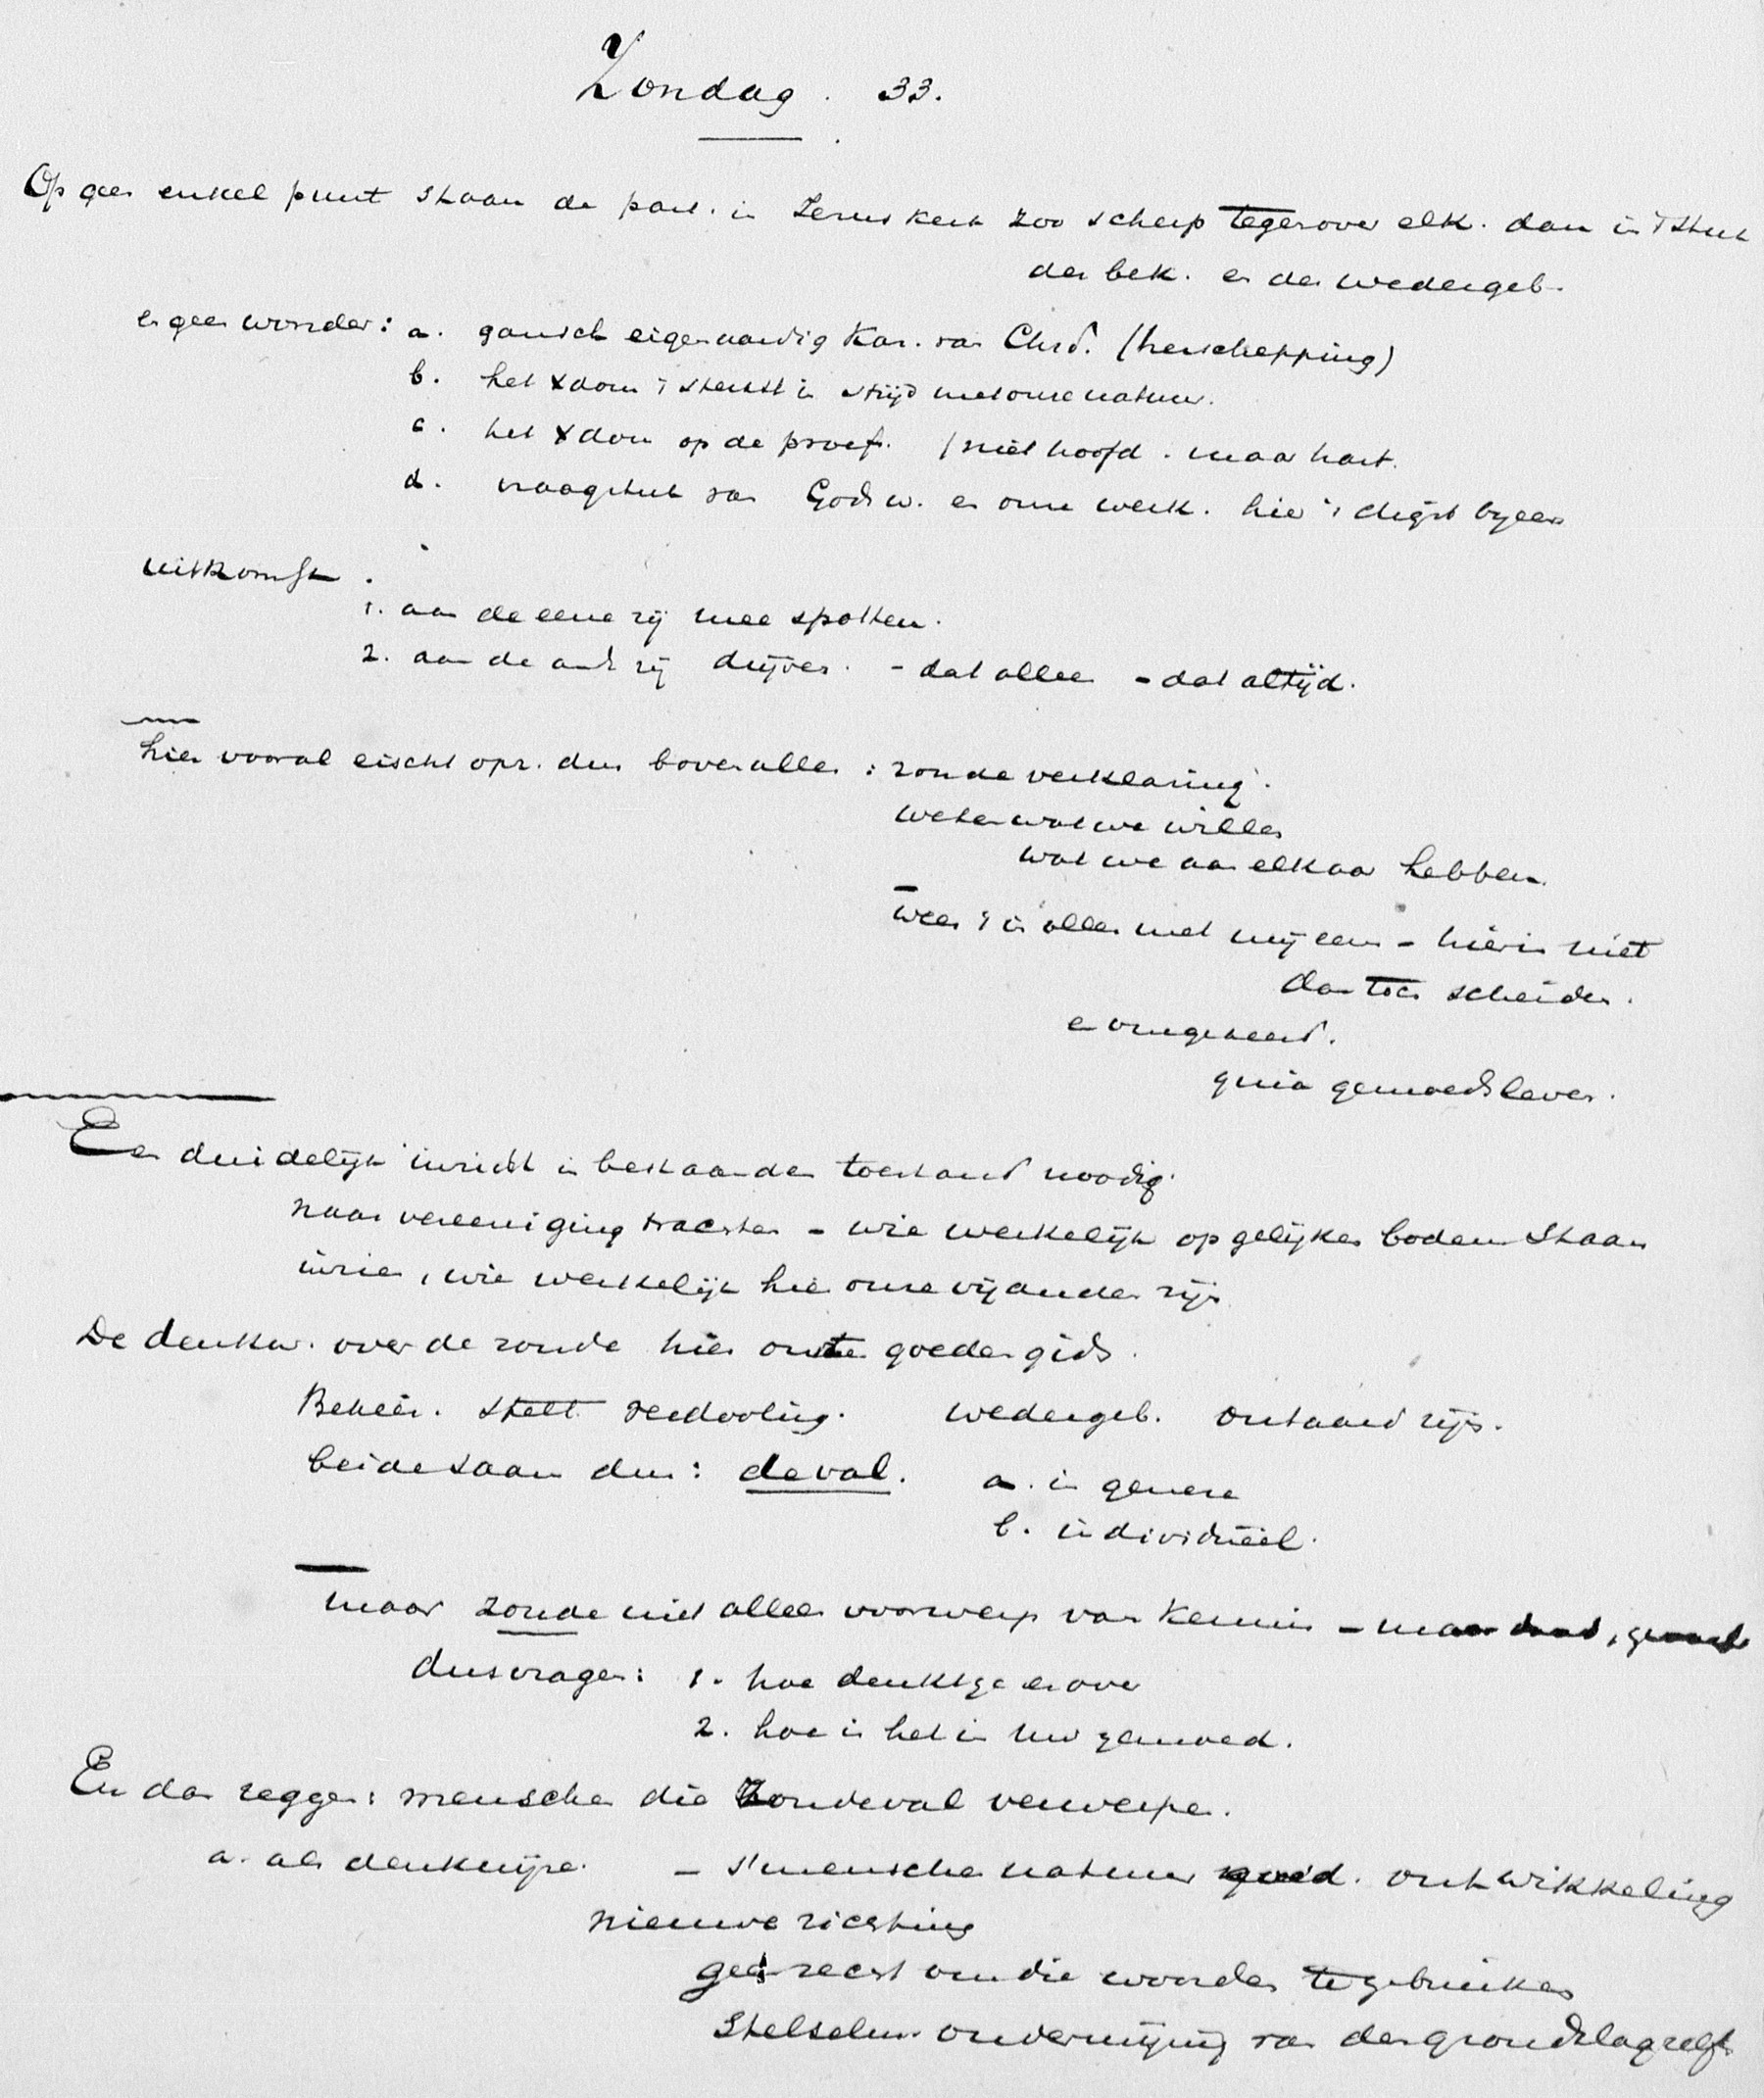 Zondag. 33.
Op geen enkel punt staan de part. in Jezus kerk zoo scherp tegenover elk. dan in 't stuk
der bek. en der wedergeb.
en geen wonder: a. gansch eigenaardig kar. van Chrd. (herschepping)
b. het Xdom 't sterkst in strijd met onze natuur.
c. het Xdom op de proef. (niet hoofd. maar hart.
d. vraagstuk van Gods w. en onze werk. hier 't digst bijeen
uitkomst.
1. aan de eene zij mee spotten.
2. aan de and zij drijven. - dat alleen - dat altijd.
hier vooral eischt opr. dus boven alles: zonde verklaring.
weten wat we willen
wat we aan elkaar hebben.
wees 't in alles met mij eens - hierin niet
dan toch scheiden.
en omgekeerd.
quia gemoedsleven.
Een duidelijk inzicht in bestaanden toestand noodig.
naar vereeniging trachten - wie werkelijk op gelijken bodem staan
inzien, wie werkelijk hier onze vijanden zijn
De denkw. over de zonde hier onze goeden gids.
Bekeer. stelt verdooling. wedergeb. ontaard zijn.
beide saam dus: de val. a. in genere
b. individueel.
maar zonde niet alleen voorwerp van kennis - maar
dus vragen: 1. hoe denkt ge er over
2. hoe is het in uw gemoed.
En dan zeggen: menschen die Zondeval verwerpen.
a. als denkwijze. - s'menschen natuur goed. ontwikkeling
nieuwe richting
geen recht om die woorden te gebruiken
Stelselm. ondermijning van den grondslag zelf